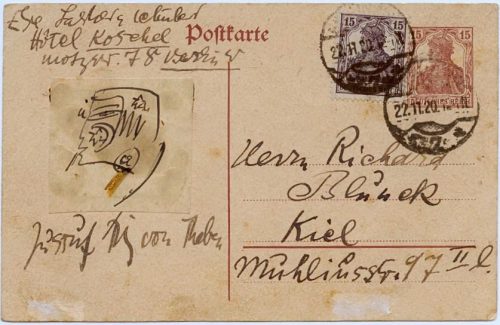 Else Lasker-Schüler
Hôtel Koschel
Motzstr. 78 Berlin W
Postkarte
15 15
15
22.11.20.
22.11.20.
Jussuf Prinz von Theben
Herrn Richard
Blunck
Kiel
Muhliusstr. 97 II l.